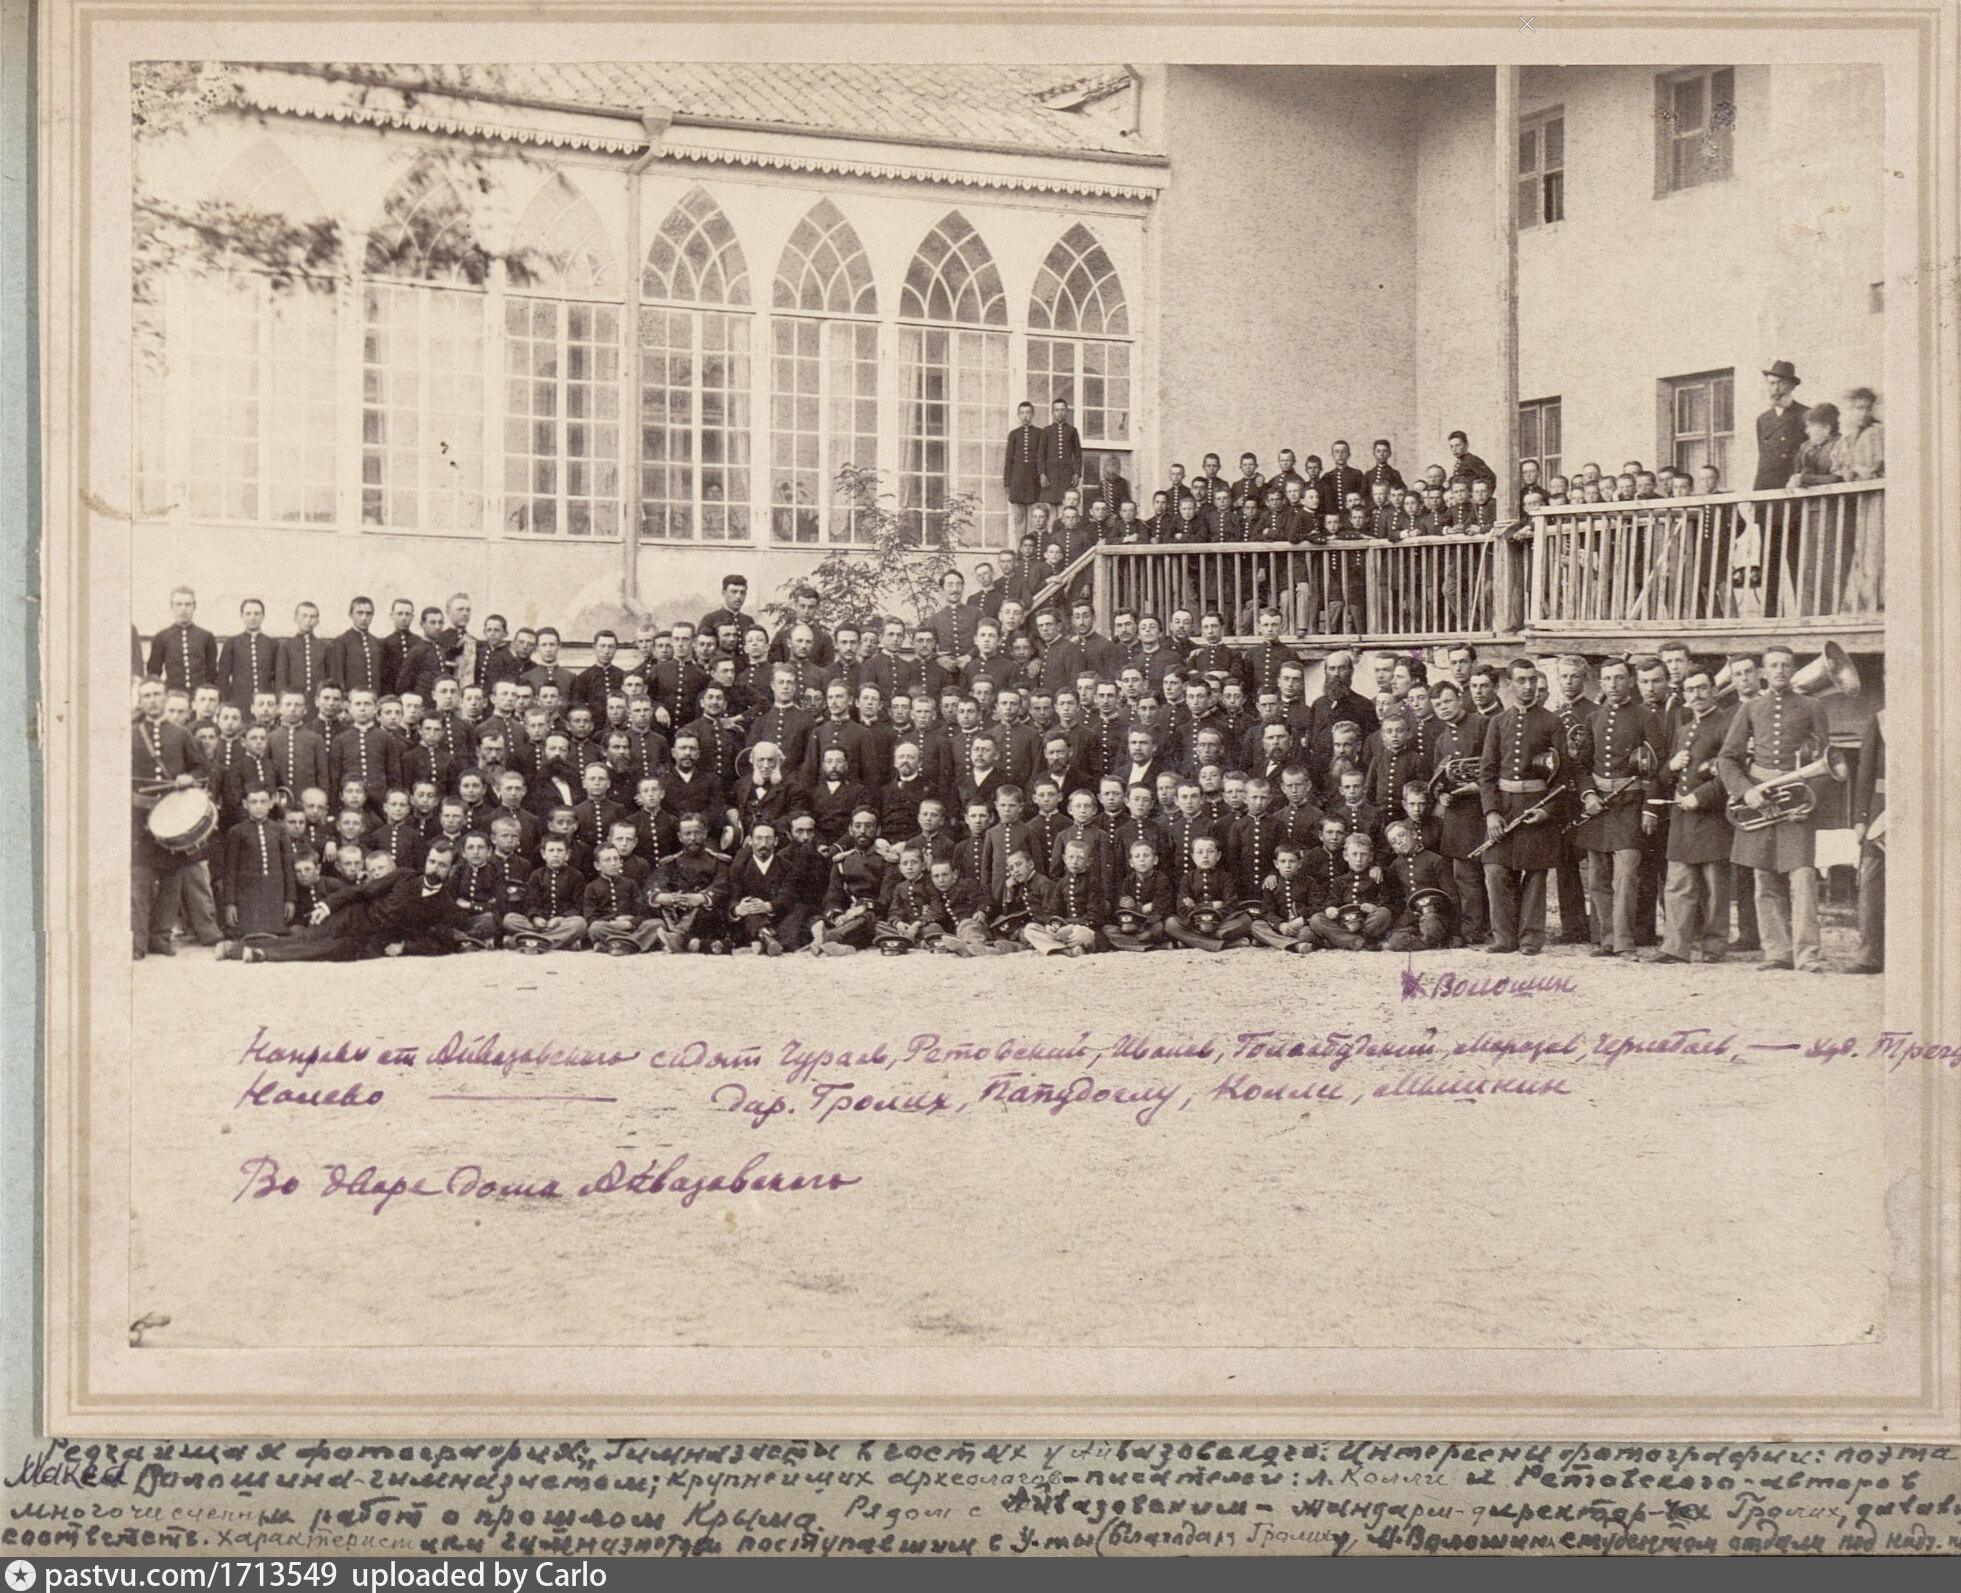 Волошин
Направо от Айвазовского сидят Чураев, Ретовский, Иванов, Гомолбудский, Морозов, Чернобаев, — худ.
Налево — Дир. Гролих, Папудоглу, Колли, Мышкин
Во дворе дома Айвазовского
Редчайшая фотография: "Гимназисты в гостях у Айвазовского. Интересны фотографии: поэта
Макса Волошина-гимназистом; крупнейших археологов-писателей: Л. Колли и Ретовского-авторов
многочисленных работ о прошлом Крыма. Рядом с Айвазовским - жандарм-директор-чех Гролих,
соответств. характеристики гимназистам поступавшим в У-ты (благодаря Гролиху, М. Волошин студентом отдали под надз.
pastvu.com/1713549 uploaded by Carlo